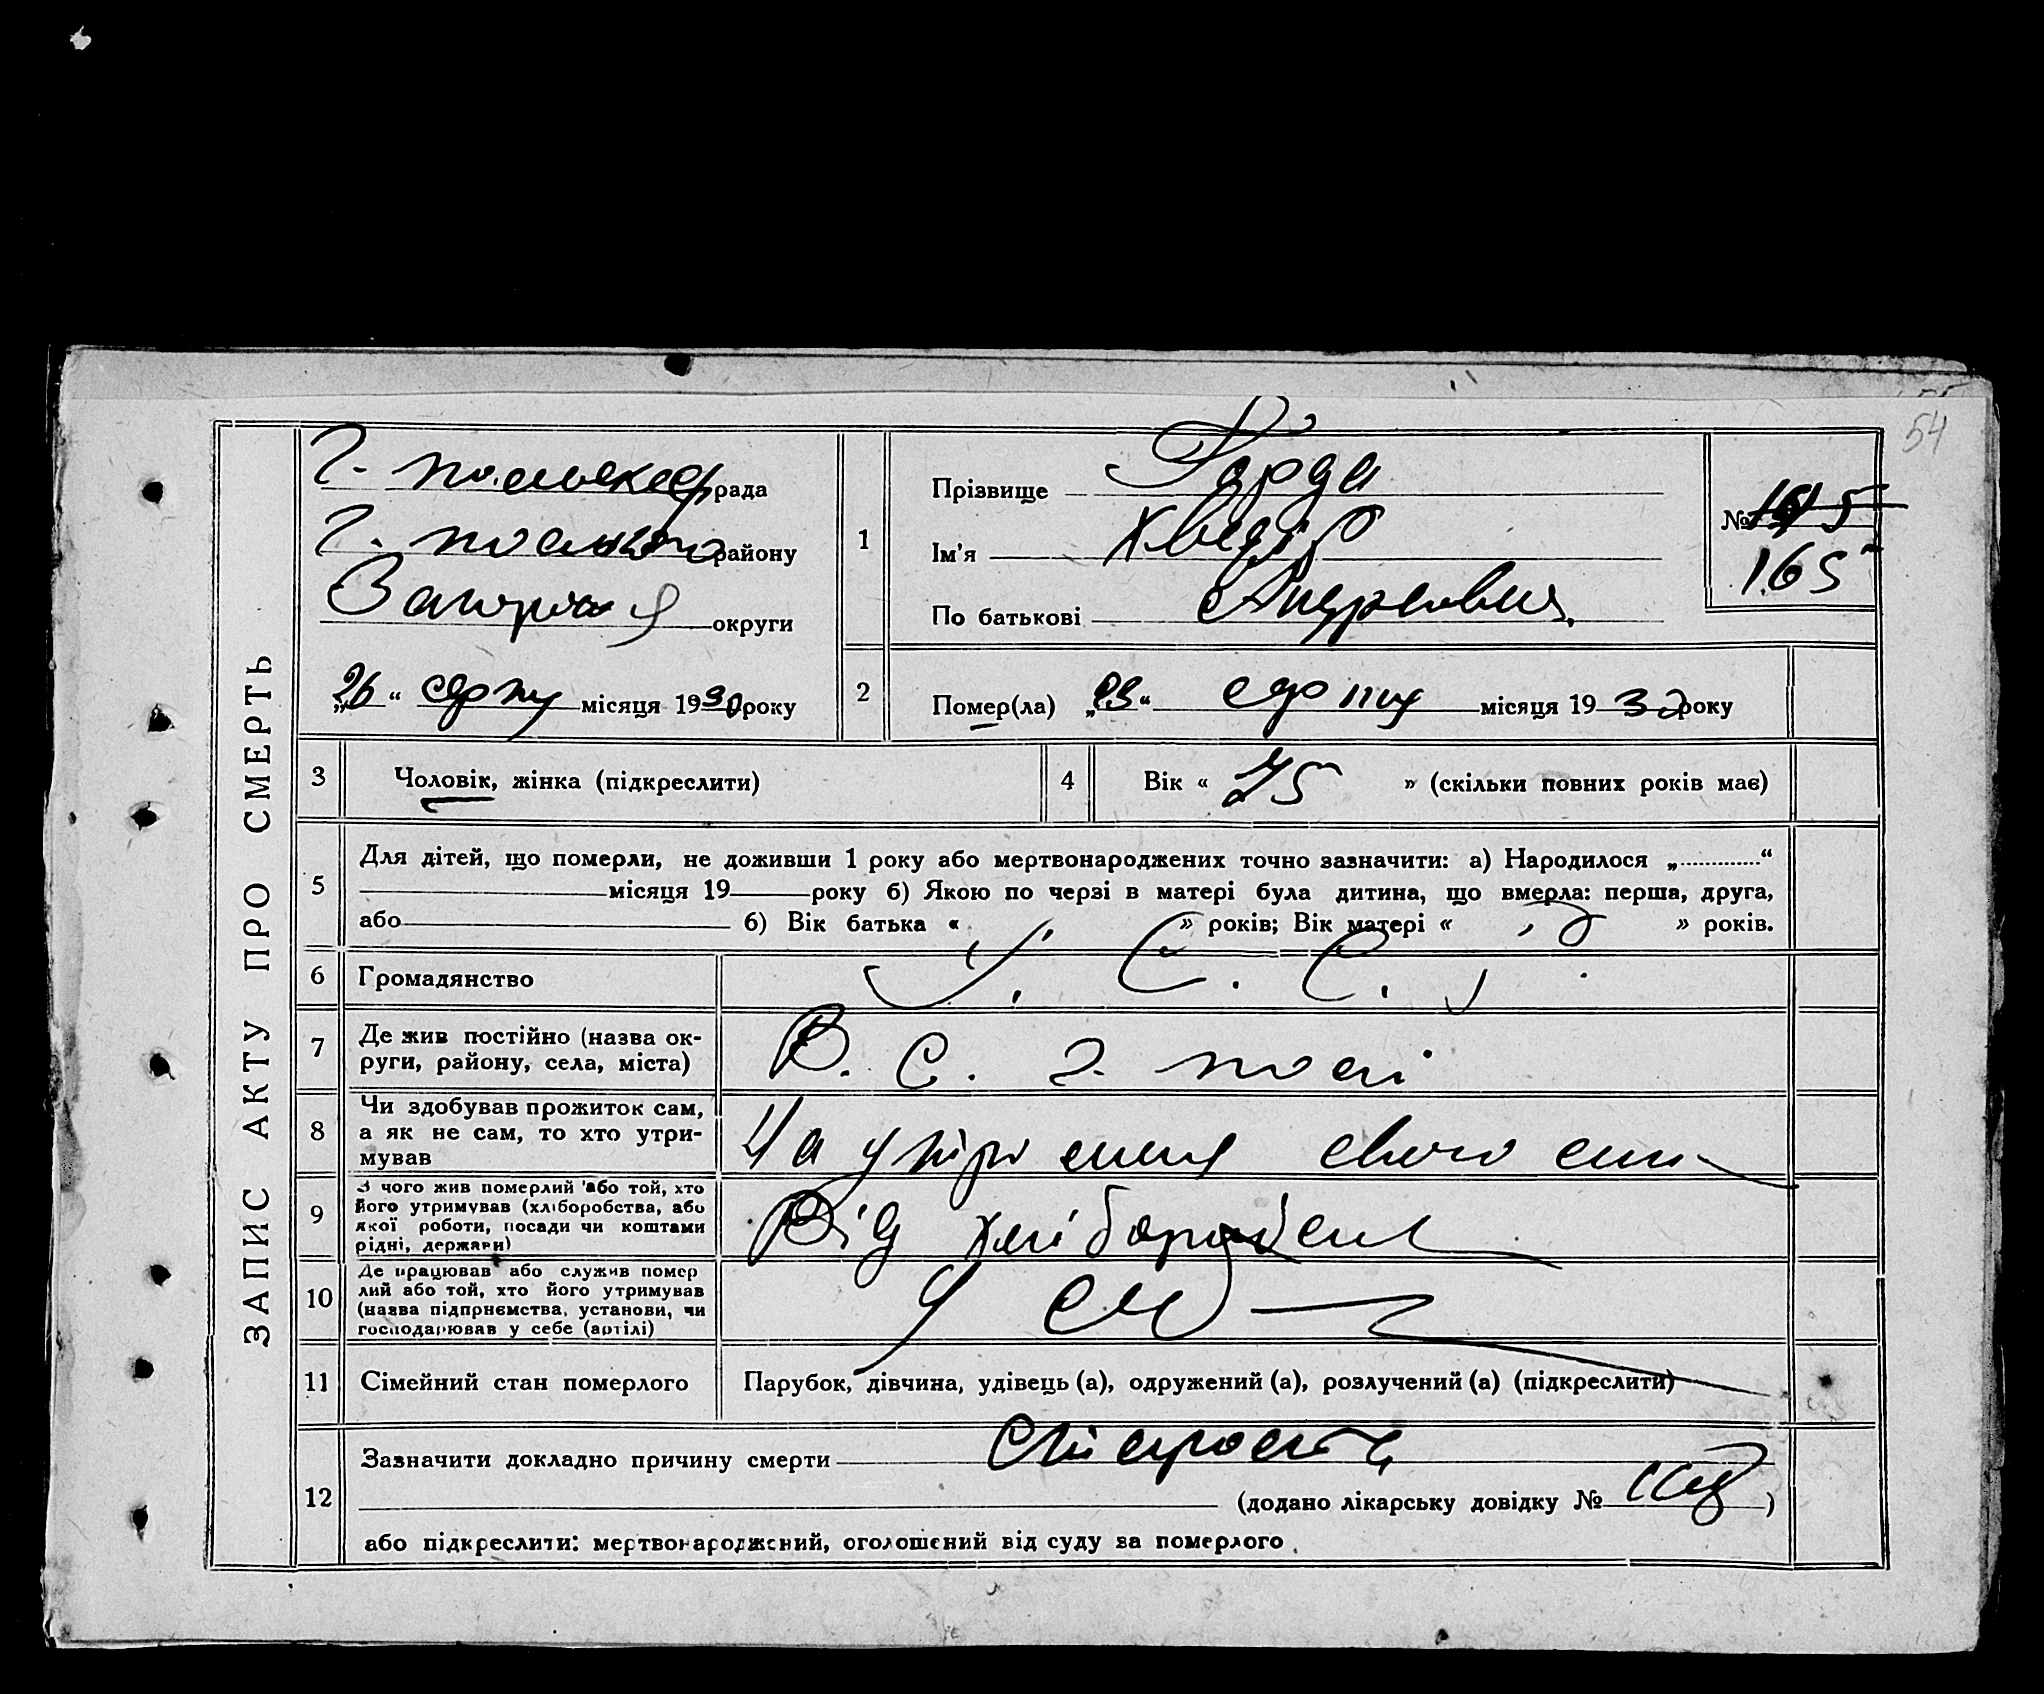 54
ЗАПИС АКТУ ПРО СМЕРТЬ
рада
району
округи
„26“ серпня місяця 1930 року
1
Прізвище
Ім'я Хведір
По батькові Андреевич
№ 165
2
Помер(ла) „23“ серпня місяця 1930 року
3
Чоловік, жінка (підкреслити)
4
Вік « 75 » (скільки повних років має)
5
Для дітей, що померли, не доживши 1 року або мертвонароджених точно зазначити: а) Народилося „............“
місяця 19 року б) Якою по черзі в матері була дитина, що вмерла: перша, друга,
або б) Вік батька « » років; Вік матері « » років.
6
Громадянство У. С. С. Р.
7
Де жив постійно (назва ок-
руги, району, села, міста)
В. С. Г. полі
8
Чи здобував прожиток сам,
а як не сам, то хто утри-
мував
На утриманні свого сина
9
З чого жив померлий або той, хто
його утримував (хліборобства, або
якої роботи, посади чи коштами
рідні, держави)
Від хліборобства
10
Де працював або служив помер
лий або той, хто його утримував
(назва підприємства, установи, чи
господарював у себе (артілі)
У
11
Сімейний стан померлого
Парубок, дівчина, удівець (а), одружений (а), розлучений (а) (підкреслити)
12
Зазначити докладно причину смерти старость
(додано лікарську довідку № )
або підкреслити: мертвонароджений, оголошений від суду за померлого